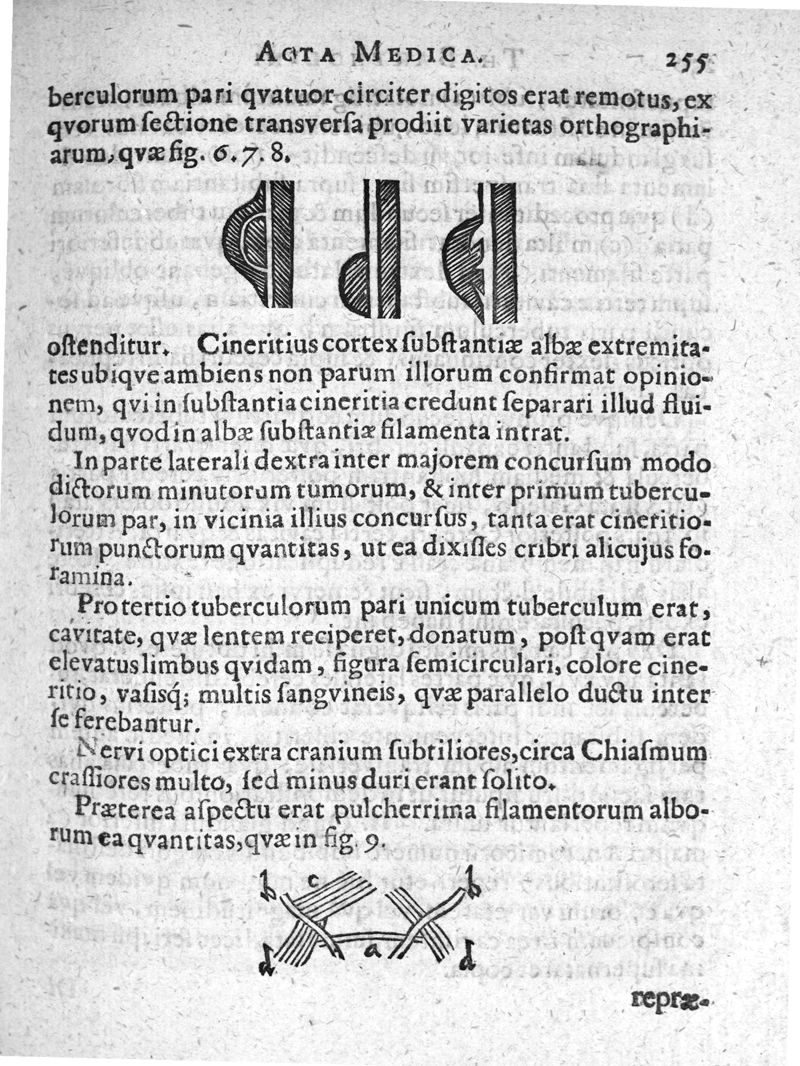 ACTA MEDICA. 255
berculorum pari qvatuor circiter digitos erat remotus, ex
qvorum ſectione transverſa prodiit varietas orthographi-
arum, qvæ fig. 6. 7. 8.
oſtenditur. Cineritius cortex ſubſtantiæ albæ extremita-
tes ubiqve ambiens non parum illorum confirmat opinio-
nem, qvi in ſubſtantia cineritia credunt ſeparari illud flui-
dum, qvod in albæ ſubſtantiæ filamenta intrat.
In parte laterali dextra inter majorem concurſum modo
dictorum minutorum tumorum, & inter primum tubercu-
lorum par, in vicinia illius concurſus, tanta erat cineritio-
rum punctorum qvantitas, ut ea dixiſſes cribri alicujus fo-
ramina.
Pro tertio tuberculorum pari unicum tuberculum erat,
cavitate, qvæ lentem reciperet, donatum, poſt qvam erat
elevatus limbus qvidam, figura ſemicirculari, colore cine-
ritio, vaſisq́; multis ſangvineis, qvæ parallelo ductu inter
ſe ferebantur.
Nervi optici extra cranium ſubtiliores, circa Chiaſmum
craſſiores multo, ſed minus duri erant ſolito.
Præterea aſpectu erat pulcherrima filamentorum albo-
rum ea qvantitas, qvæ in fig. 9.
b c b
d a d
repræ-